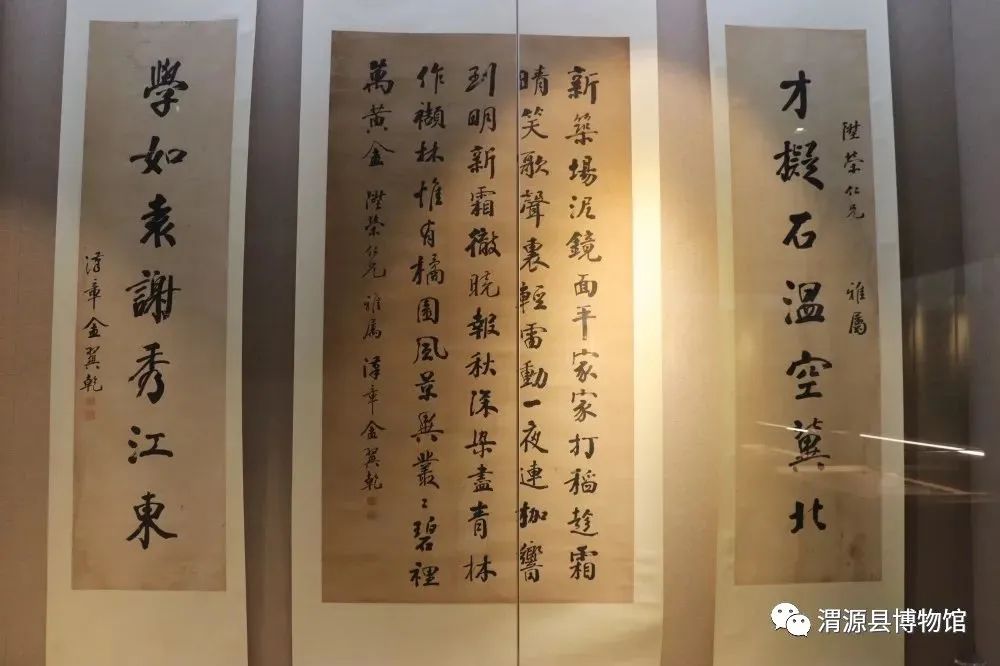 陞榮仁兄 雅屬
才擬石溫空冀北
新築場泥鏡面平家家打稻趁霜
晴笑歌聲裏輕雷動一夜連枷響
到明新霜徹曉報秋深染盡青林
作纈林惟有橘園風景異叢〻碧裡
萬黃金 陞榮仁兄 雅屬 漢章金翼乾
學如袁謝秀江東
漢章金翼乾
渭源县博物馆